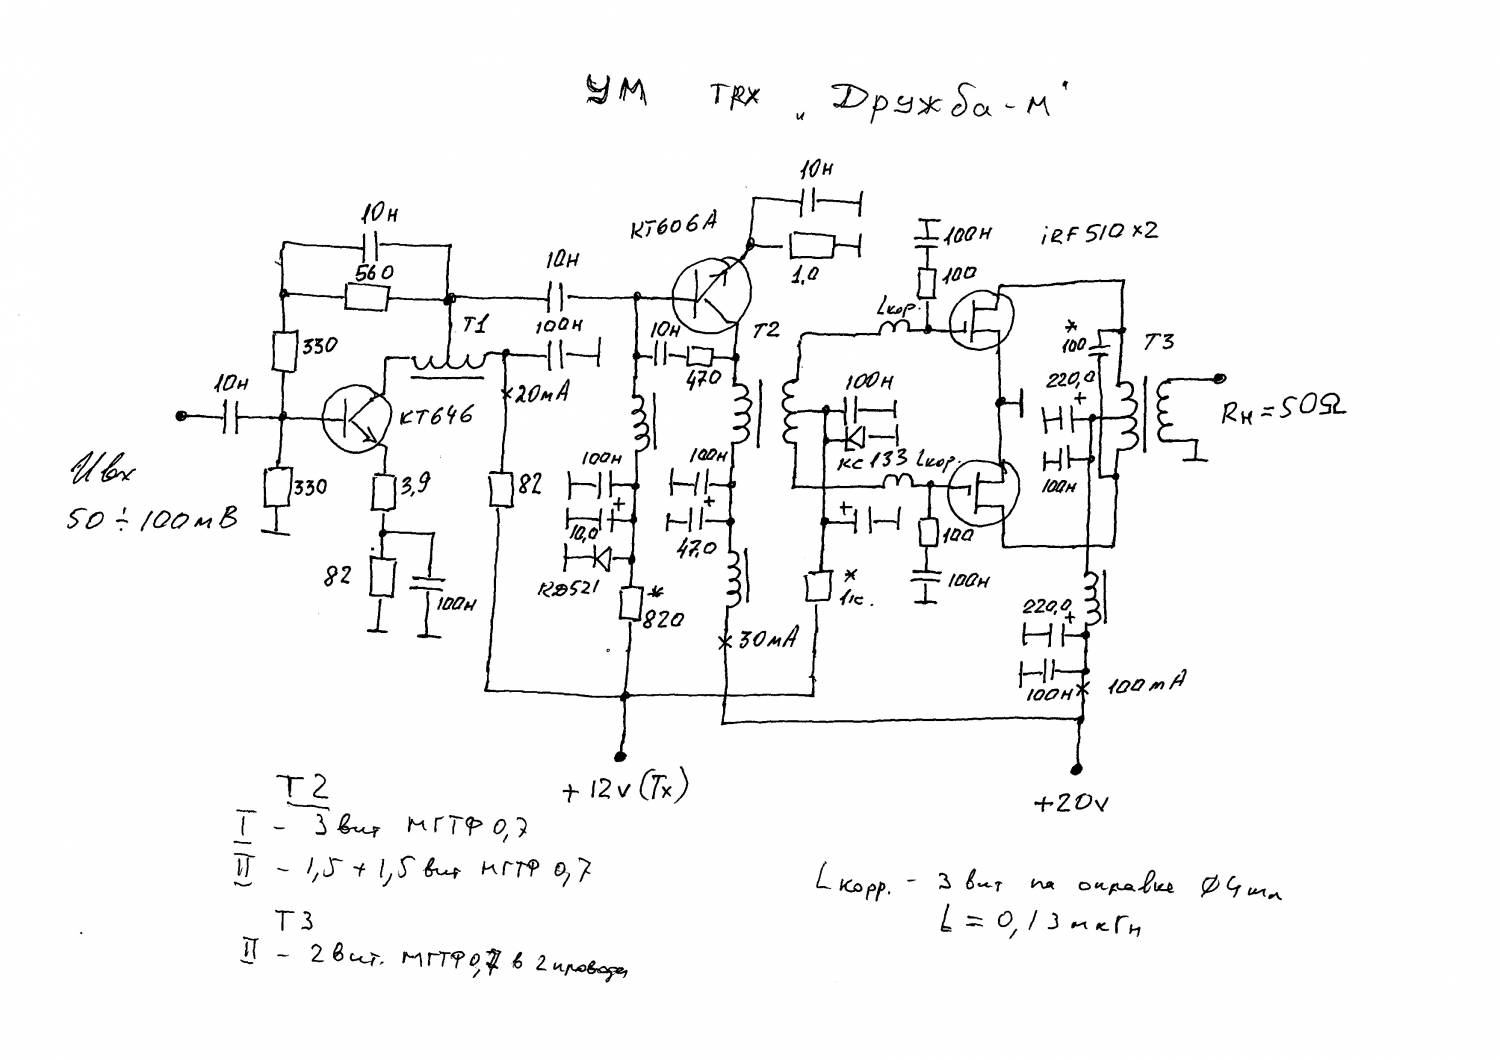 УМ TRX „Дружба-м"
10н
КТ606А
10н
1,0
100н
100
iRF510x2
10н
560
10н
330
Т1
100н
10н
470
Т2
Lкор.
*
100
Т3
220,0
+
10н
КТ646
20мА
100н
КС133
Lкор.
100н
Rн = 50Ω
Uвх
50 ÷ 100мВ
330
3,9
82
100н
+
10,0
КД521
100н
+
47,0
+
100
100н
82
100н
*
820
*
1к.
30мА
220,0
+
100н
100mA
+12v (Tx)
+20v
Т2
I - 3 вит МГТФ 0,7
II - 1,5 + 1,5 вит МГТФ 0,7
Т3
II - 2 вит. МГТФ 0,7 в 2 провода
Lкорр. - 3 вит на оправке Ø4мм
L = 0,13 мкГн